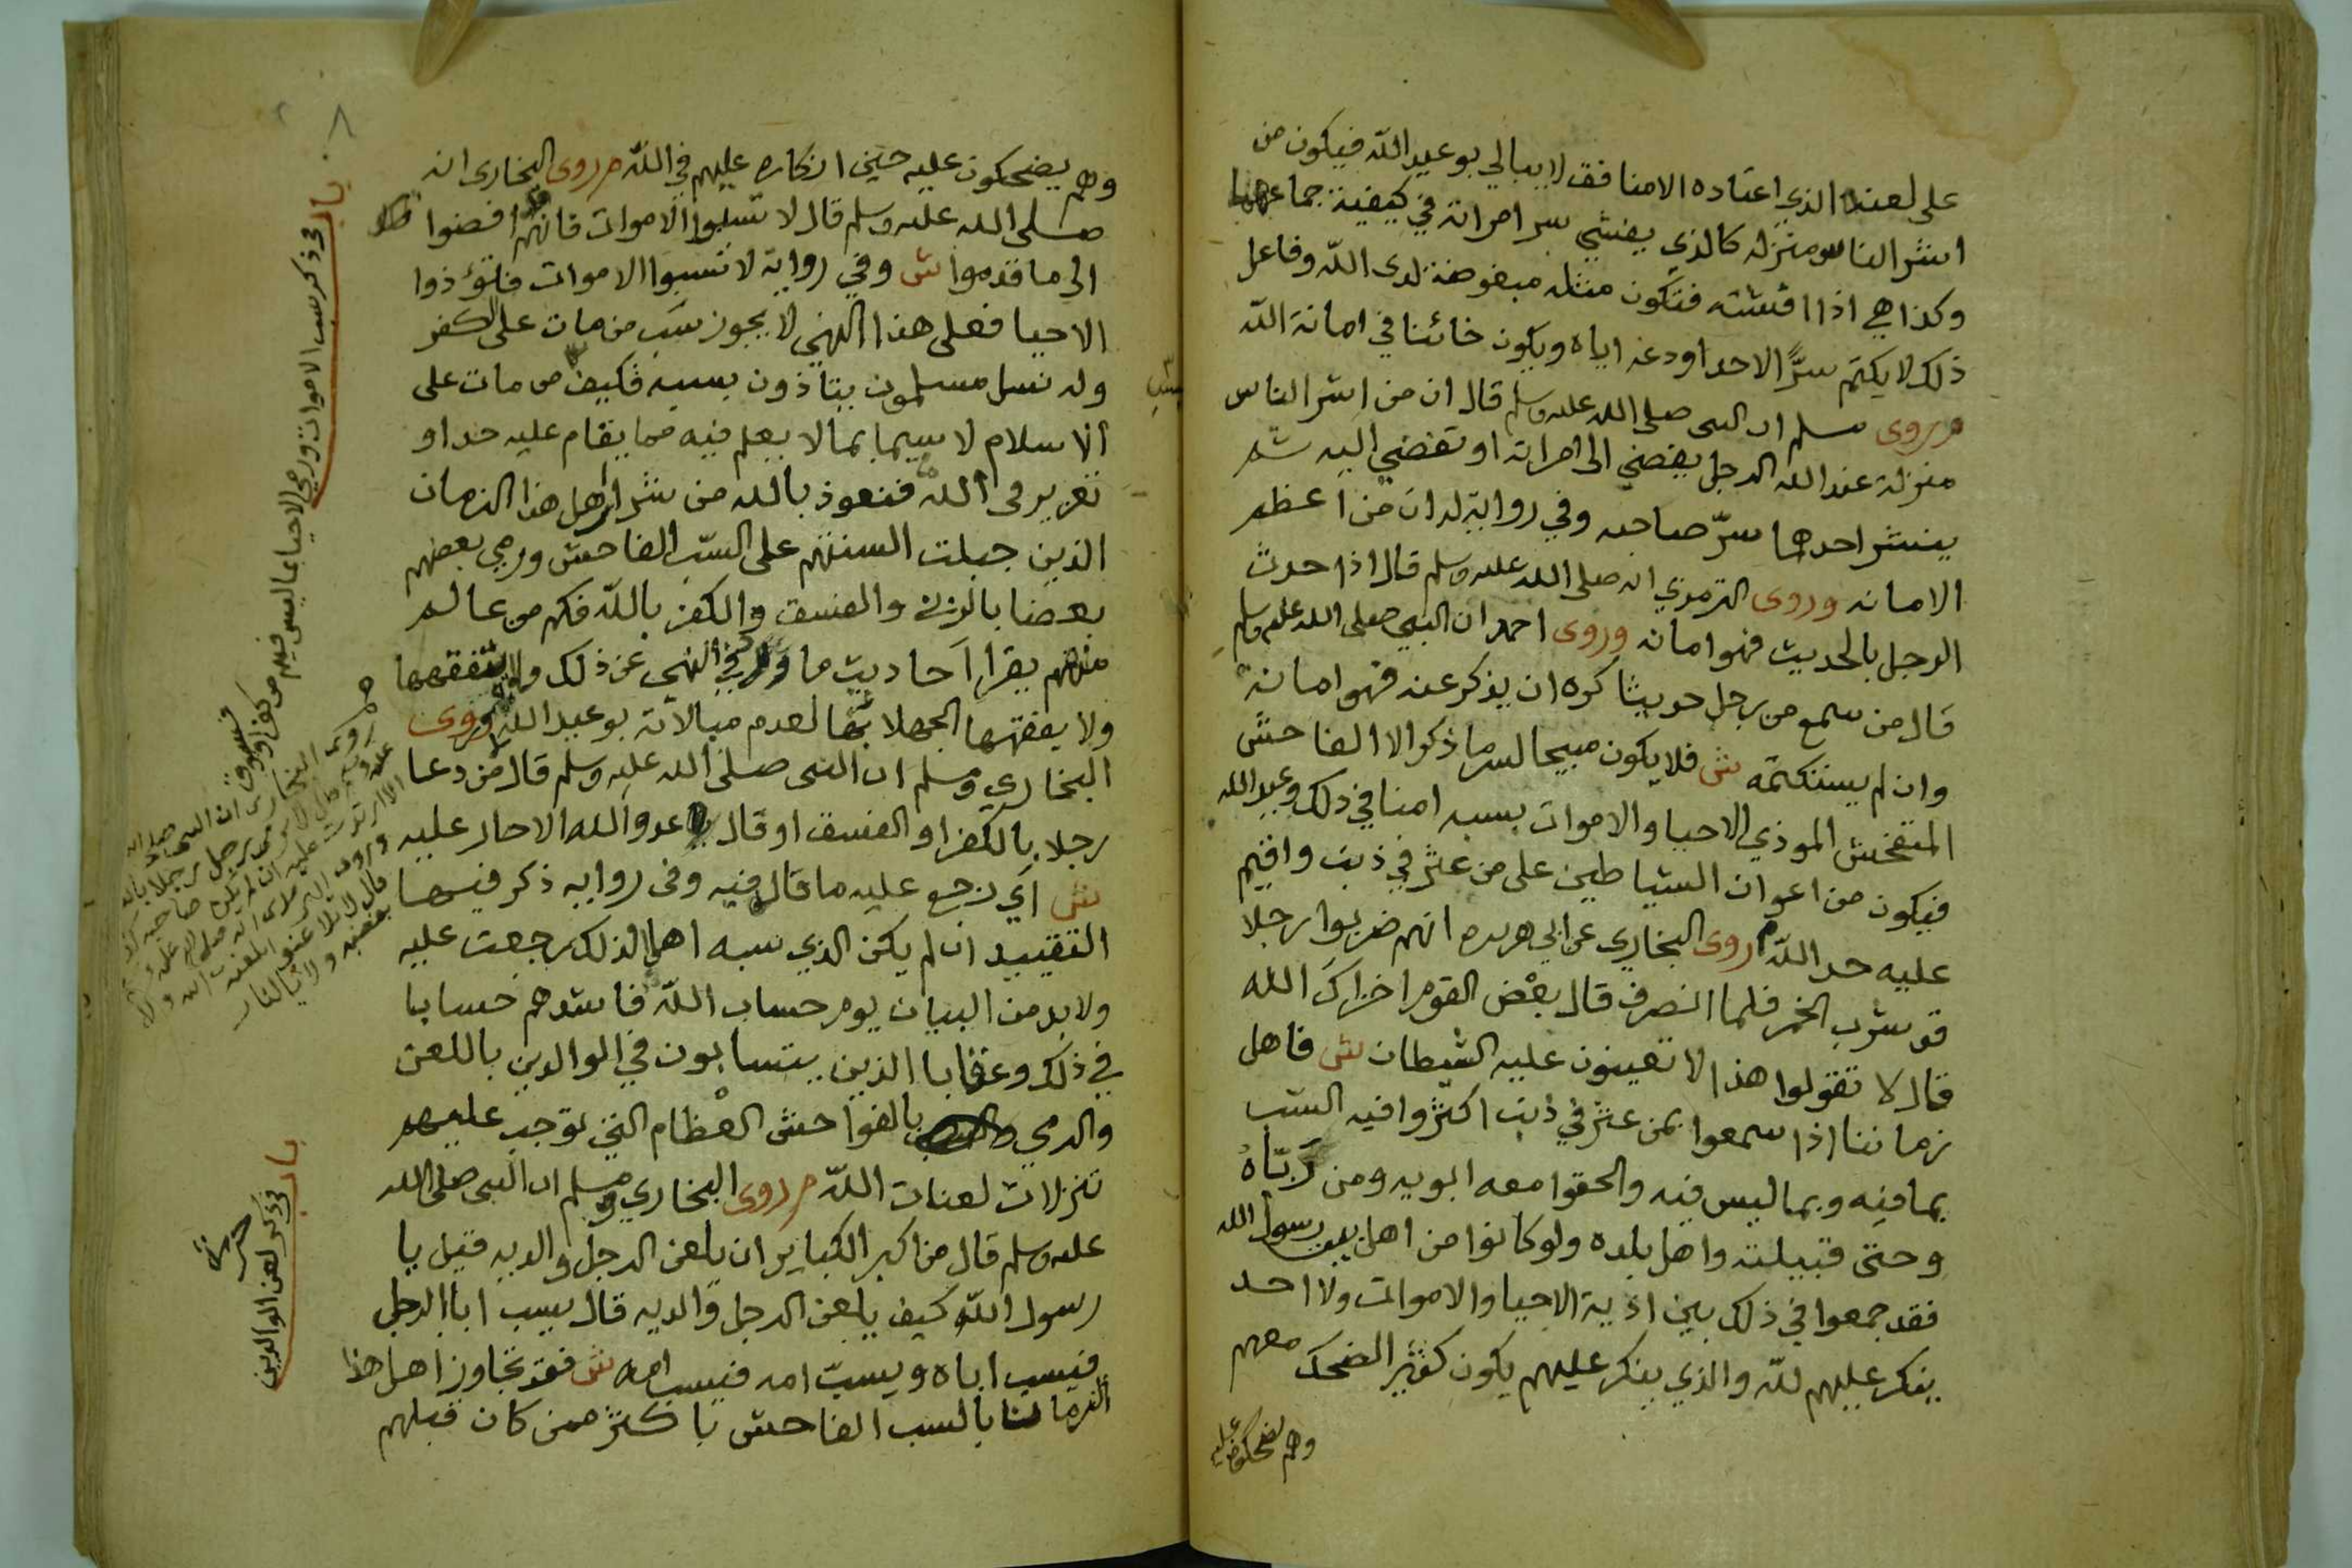 على لعنه الذي اعتاده الا منافق لا يبالي بوعيد الله فيكون من
اشر الناس منزله كالذي يفشي سر امراته في كيفية جماعهما
وكذا هي اذا افشته فتكون مثله مبغوضة لدى الله وفاعل
ذلك لا يكتم سرًّا لاحد اودعه اياه ويكون خائنا في امانة الله
م روى مسلم ان النبي صلى الله عليه وسلم قال ان من اشر الناس
منزلة عند الله الرجل يفضي الى امراته او تفضي اليه ثم
ينشر احدهما سرّ صاحبه وفي رواية له ان من اعظم
الامانه وروى الترمذي انه صلى الله عليه وسلم قال اذا حدث
الرجل بالحديث فهو امانه وروى احمد ان النبي صلى الله عليه وسلم
قال من سمع من رجل حديثا كره ان يذكر عنه فهو امانة
وان لم يستكتمه ش فلا يكون مبيحا لسر ما ذكر الا الفاحش
المتفحش الموذي الاحيا والاموات بسبه امنا في ذلك وعيد الله
فيكون من اعوان الشياطين على من عثر في ذنب واقيم
عليه حد الله م روى البخاري عن ابي هريره انهم ضربوا رجلا
قد شرب الخمر فلما انصرف قال بعض القوم اخزاك الله
قال لا تقولوا هذا لا تعينون عليه الشيطان ش فاهل
زماننا اذا سمعوا بمن عثر في ذنب اكثروا فيه السب
بما فيه وبما ليس فيه والحقوا معه ابويه ومن ربّاه
وحتى قبيلته واهل بلده ولو كانوا من اهل بيت رسول الله
فقد جمعوا في ذلك بين اذية الاحيا والاموات ولا احد
ينكر عليهم لله والذي ينكر عليهم يكون كثير الضحك معهم
وهم يضحكون عليه
٨
وهم يضحكون عليه حين انكاره عليهم في الله م روى البخاري انه
صلى الله عليه وسلم قال لا تسبوا الاموات فانهم قد افضوا
الى ما قدموا ش وفي رواية لا تسبوا الاموات فتؤذوا
الاحيا فعلى هذا النهي لا يجوز سب من مات على الكفر
وله نسل مسلمون يتاذون بسبه فكيف من مات على
الاسلام لا سيما بما لا يعلم فيه مما يقام عليه حد او
تعزير في الله فنعوذ بالله من شرار اهل هذا الزمان
الذين جبلت السنتهم على السبّ الفاحش ورمي بعضهم
بعضا بالزنى والفسق والكفر بالله فكم من عالم
منهم يقرا احاديث ما ورد في النهي عن ذلك ولا يتفقهها
ولا يفقهها الجهلا بها لعدم مبالاته بوعيد الله وروى
البخاري ومسلم ان النبي صلى الله عليه وسلم قال من دعا
رجلا بالكفر او الفسق او قال يا عدو الله الا حار عليه
ش اي رجع عليه ما قال فيه وفي روايه ذكر فيها
التقييد ان لم يكن الذي سبه اهلا لذلك رجعت عليه
ولا بد من البيان يوم حساب الله فاشدهم حسابا
في ذلك وعقابا الذين يتسابون في الوالدين باللعن
والرمي بالفواحش العظام التي توجب عليهم
تنزلات لعنات الله م روى البخاري ومسلم ان النبي صلى الله
عليه وسلم قال من اكبر الكباير ان يلعن الرجل والديه قيل يا
رسول الله كيف يلعن الرجل والديه قال يسب ابا الرجل
فيسب اباه ويسبّ امه فيسب امه ش فقد تجاوز اهل هذا
الزمان بالسب الفاحش باكثر ممن كان قبلهم
باب في ذكر سب الاموات ورمي الاحيا بما ليس فيهم من كفر او فسوق
باب في ذكر لعن الوالدين